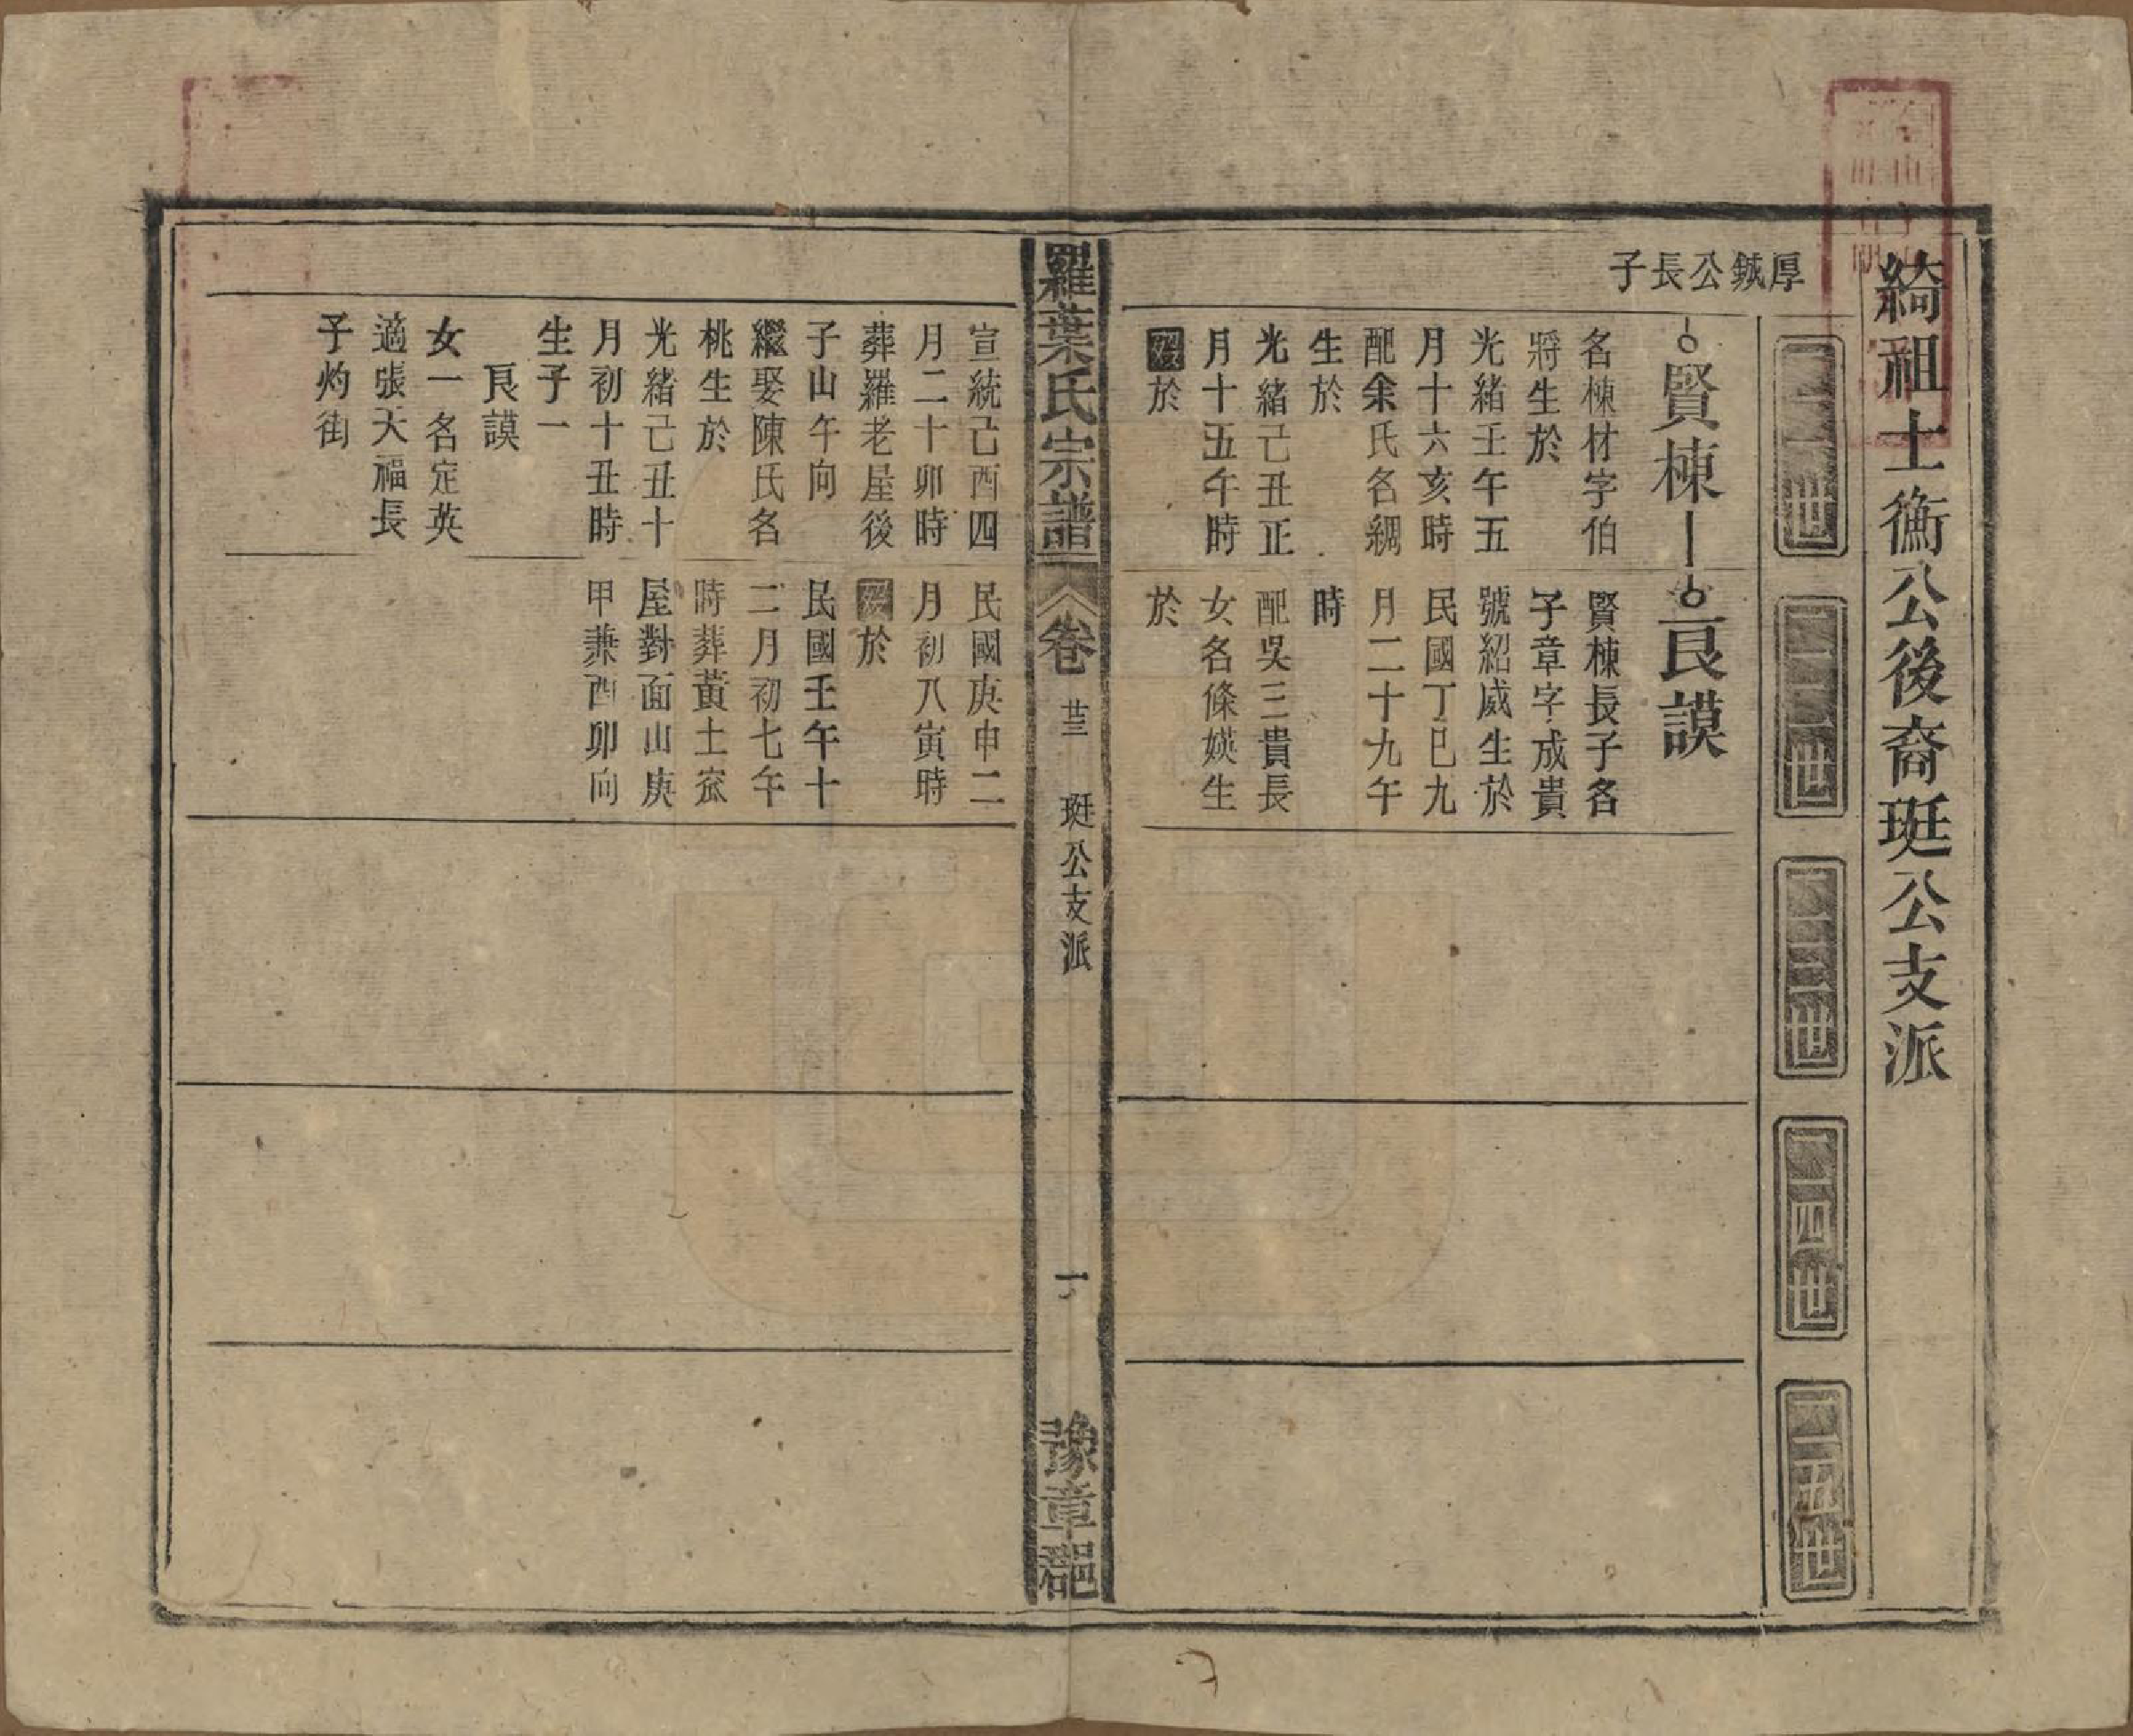 綺祖士衡公後裔珽公支派
二一世
二二世
二三世
二四世
二五世
厚鋮公長子
賢棟
名棟材字伯
將生於
光緒壬午五
月十六亥時
配余氏名綢
生於
光緒己丑正
月十五午時
歿於
良謨
賢棟長子名
子章字成貴
號紹威生於
民國丁巳九
月二十九午
時
配吳三貴長
女名條媖生
於
羅葉氏宗譜
卷
廿三
珽公支派
一
豫章郡
宣統己酉四
月二十卯時
葬羅老屋後
子山午向
繼娶陳氏名
桃生於
光緒己丑十
月初十丑時
生子一
良謨
女一名定英
適張天福長
子灼街
民國庚申二
月初八寅時
歿於
民國壬午十
二月初七午
時葬黃土窊
屋對面山庚
甲兼酉卯向